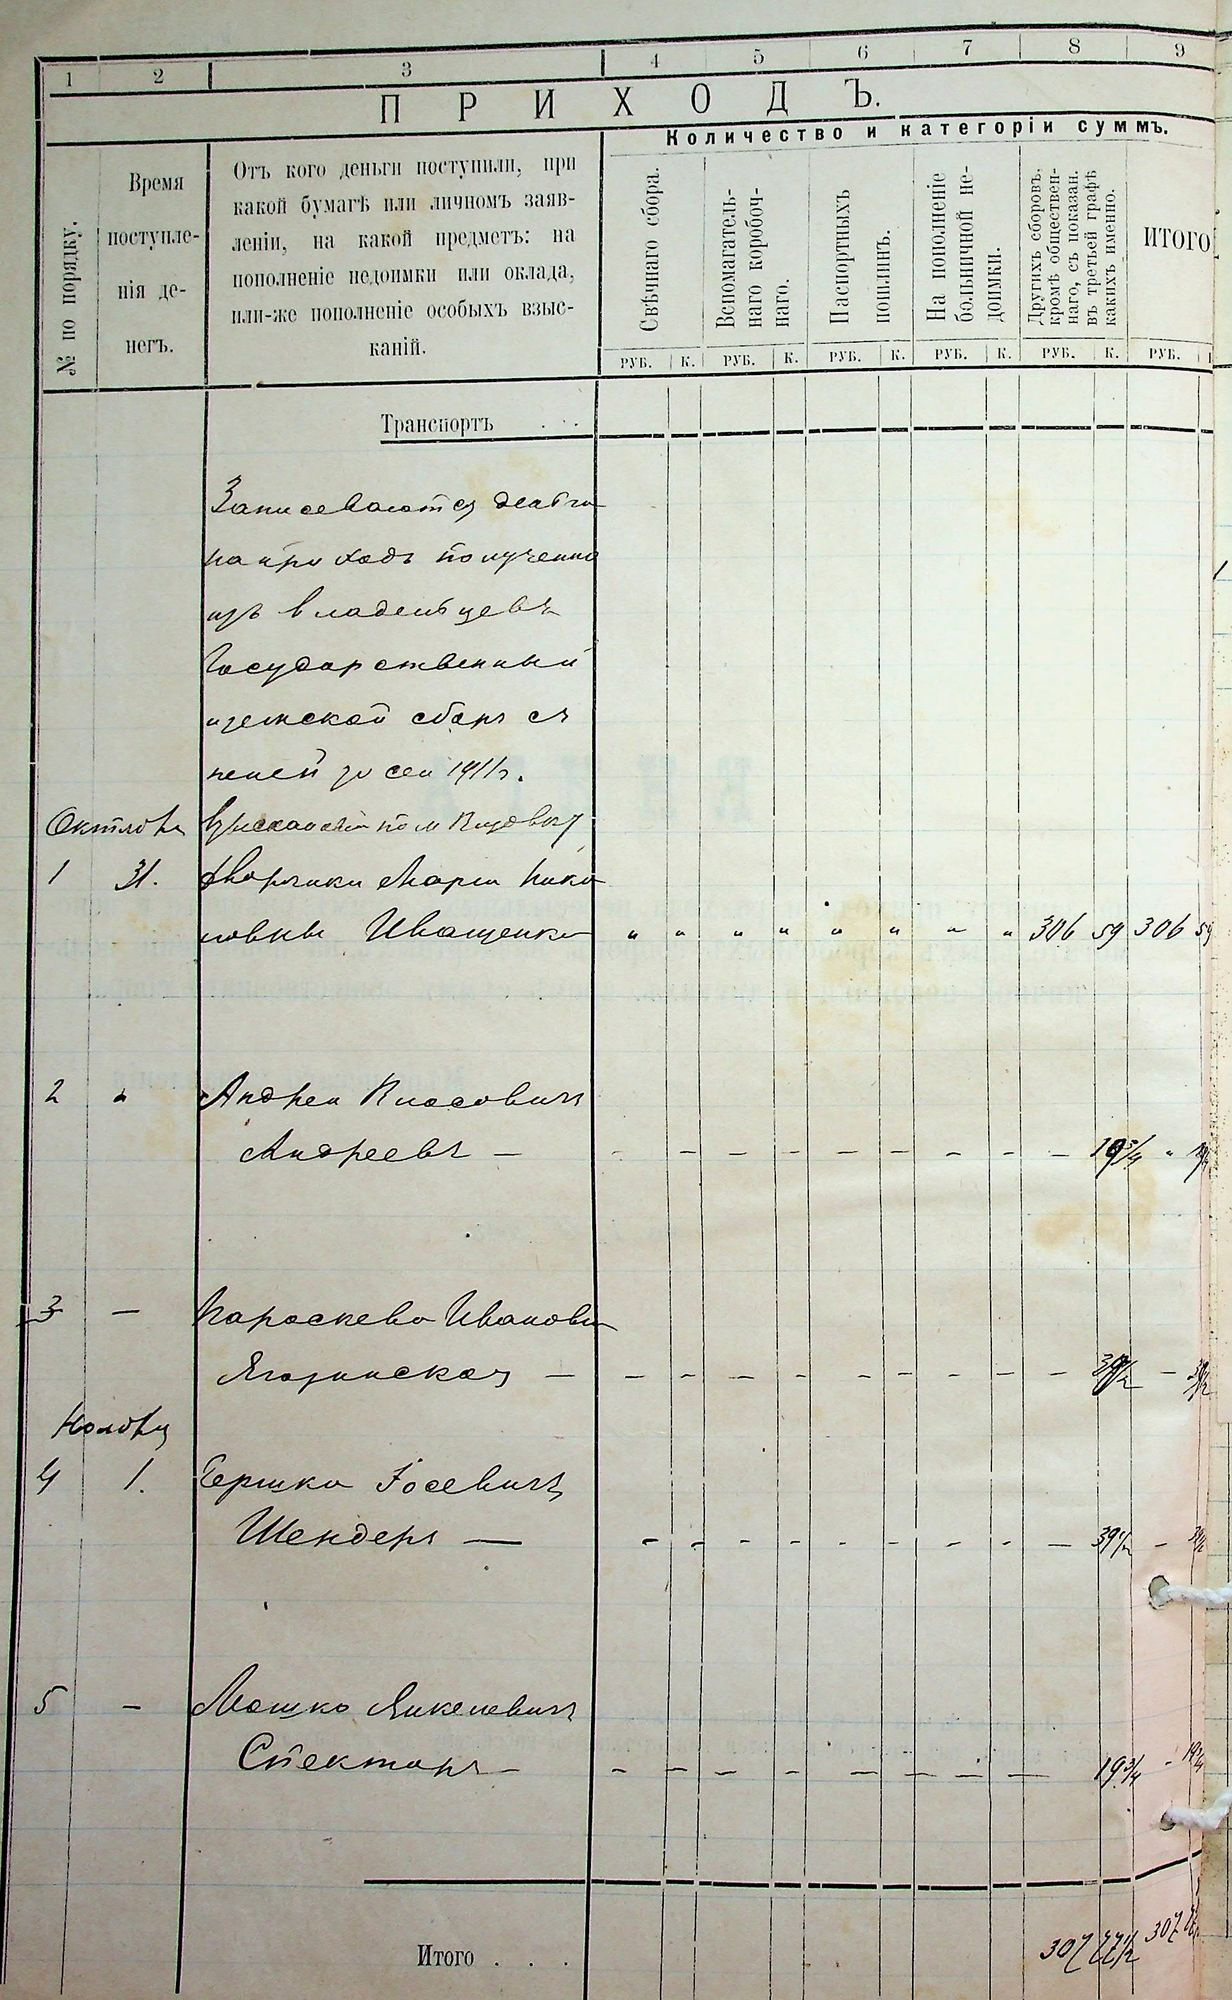 1 2 3 4 5 6 7 8 9
ПРИХОДЪ.
Количество и категоріи суммъ.
№ по порядку.
Время
поступле-
нія де-
негъ.
Отъ кого деньги поступили, при
какой бумагѣ или личномъ заяв-
леніи, на какой предметъ: на
пополненіе недоимки или оклада,
или-же пополненіе особыхъ взыс-
каній.
Свѣчнаго сбора.
Вспомагатель-
наго коробоч-
наго.
Паспортныхъ
пошлинъ.
На пополненіе
больничной не-
доимки.
Другихъ сборовъ,
кромѣ обществен-
наго, съ показан.
въ третьей графѣ
какихъ именно.
ИТОГО
РУБ. К. РУБ. К. РУБ. К. РУБ. К. РУБ. К. РУБ.
Транспортъ . . .
Записеваются деньги
на приходъ полученни
изъ владельцевъ
Государственный
и земской сборъ съ
пеней за сей 1911 г.
Октября
1 31. Дворянки Марьи Нико
ловны Иващенко " " " " " " " " 306 59 306 59
2 " Андрей Власовичъ
Андреевъ — — — — — — — — — — 19 3/4 " 19 3/4
3 — Параскева Иванов
Ягозинская — — — — — — — — — — 39 1/2 — 39 1/2
Ноября
4 1. Гершко Іосевичъ
Шендеръ — — — — — — — — — — 39 1/2 — 39 1/2
5 — Мошко Янкелевичъ
Спекторъ — — — — — — — — — — 19 3/4 — 19 3/4
Итого . . . 307 77 1/2 307